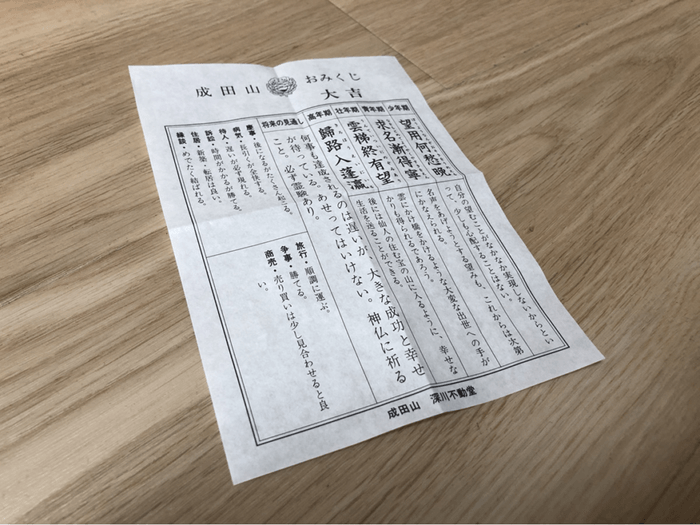 成田山 おみくじ
大吉
少年期
望用何愁晩
自分の望むことがなかなか実現しないからとい
って、少しも心配することはない。
青年期
求名漸得寧
名声をあげようとする望みも、これからは次第
にかなえられる。
壮年期
雲梯終有望
雲にかけ橋をかけるような大変な出世への手が
かりも得られるであろう。
高年期
歸路入蓬瀛
後には仙人の住む宝の山に入るように、幸せな
生活を送ることができる。
将来の見通し
何事も達成されるのは遅いが、大きな成功と幸せ
が待っている。あせってはいけない。神仏に祈る
こと。必ず霊験あり。
慶事・後になるがたくさん起こる。
病気・長引くが全快する。
待人・遅いが必ず現れる。
訴訟・時間がかかるが勝てる。
住居・新築・転居は良い。
縁談・めでたく結ばれる。
旅行・順調に運ぶ。
争事・勝てる。
商売・売り買いは少し見合わせると良
い。
成田山 深川不動堂